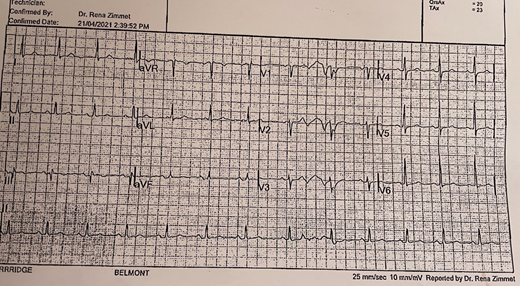 Technician:
Confirmed By: Dr. Rena Zimmet
Confirmed Date: 21/04/2021 2:39:52 PM
TAx = 23
I aVR V1 V4
II aVL V2 V5
III aVF V3 V6
II
RRRIDGE BELMONT 25 mm/sec 10 mm/mV Reported by Dr. Rena Zimmet